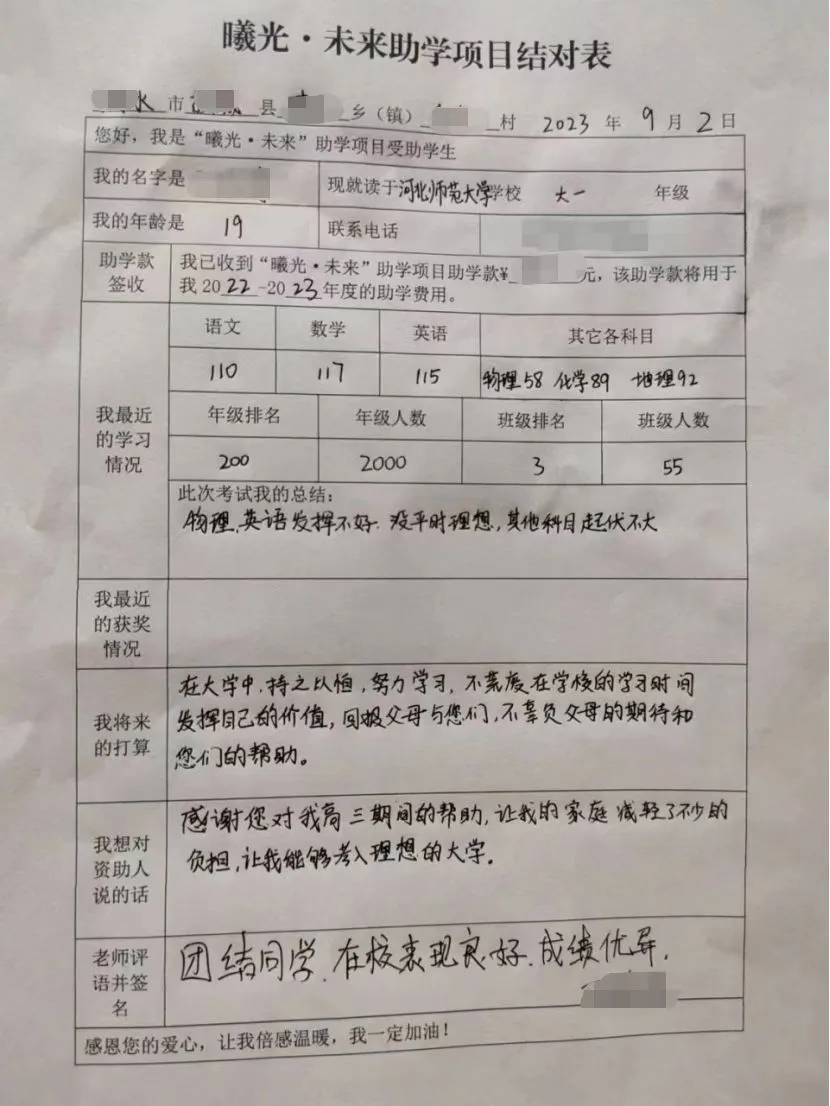 曦光·未来助学项目结对表
水 市 县 乡（镇） 村 2023 年 9 月 2 日
您好，我是“曦光·未来”助学项目受助学生
我的名字是 现就读于河北师范大学学校 大一 年级
我的年龄是 19 联系电话
助学款签收 我已收到“曦光·未来”助学项目助学款¥ 元，该助学款将用于
我2022-2023年度的助学费用。
我最近的学习情况
语文 数学 英语 其它各科目
110 117 115 物理58 化学89 地理92
年级排名 年级人数 班级排名 班级人数
200 2000 3 55
此次考试我的总结：
物理、英语发挥不好，没平时理想，其他科目起伏不大
我最近的获奖情况
我将来的打算
在大学中，持之以恒，努力学习，不荒废在学校的学习时间
发挥自己的价值，回报父母与您们，不辜负父母的期待和
您们的帮助。
我想对资助人说的话
感谢您对我高三期间的帮助，让我的家庭减轻了不少的
负担，让我能够考入理想的大学。
老师评语并签名
团结同学，在校表现良好，成绩优异，
感恩您的爱心，让我倍感温暖，我一定加油！